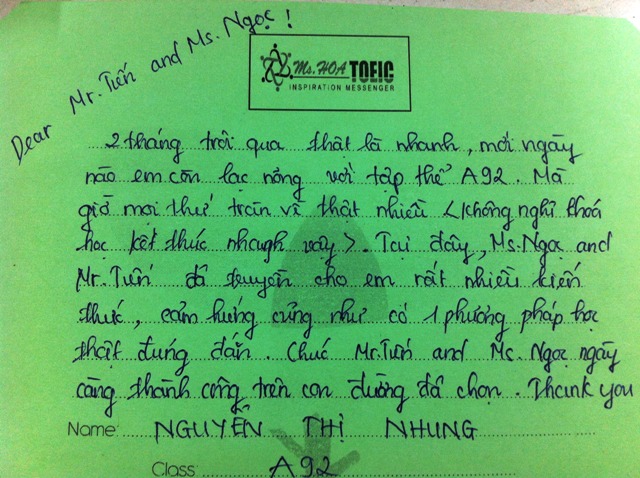 Dear Mr. Tiến and Ms. Ngọc!
Ms. HOA TOEIC
INSPIRATION MESSENGER
2 tháng trôi qua thật là nhanh, mới ngày
nào em còn lạc nõng với tập thể A92. Mà
giờ mọi thứ tràn về thật nhiều <không nghĩ khoá
học kết thúc nhanh vậy>. Tại đây, Ms. Ngọc and
Mr. Tiến đã truyền cho em rất nhiều kiến
thức, cảm hứng cũng như có 1 phương pháp học
thật đúng đắn. Chúc Mr. Tiến and Ms. Ngọc ngày
càng thành công trên con đường đã chọn. Thank you
Name: NGUYỄN THỊ NHUNG
Class: A92